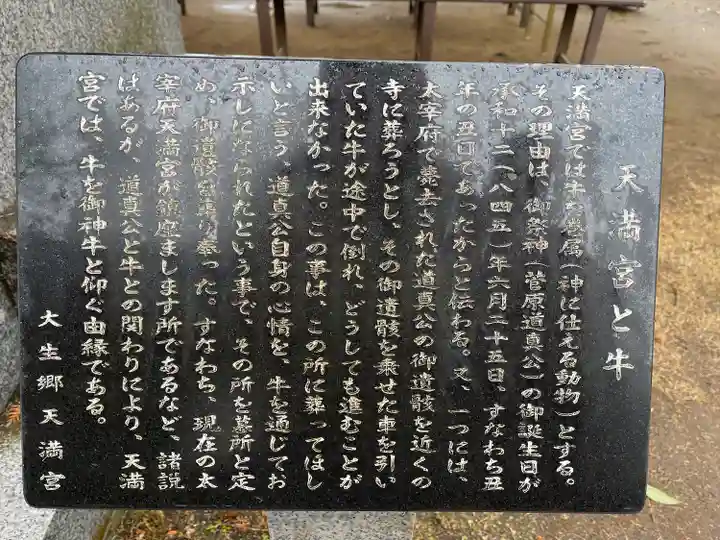 天満宮と牛
天満宮では牛を眷属(神に仕える動物)とする。
その理由は、御祭神(菅原道真公)の御誕生日が
承和十二(八四五)年六月二十五日、すなわち丑
年の丑日であったからと伝わる。又、一つには、
太宰府で薨去された道真公の御遺骸を近くの
寺に葬ろうとし、その御遺骸を乗せた車を引い
ていた牛が途中で倒れ、どうしても進むことが
出来なかった。この事は、この所に葬ってほし
いと言う、道真公自身の心情を、牛を通じてお
示しになられたという事で、その所を墓所と定
め、御遺骸を葬り奉った。すなわち、現在の太
宰府天満宮が鎮座まします所であるなど、諸説
はあるが、道真公と牛との関わりにより、天満
宮では、牛を御神牛と仰ぐ由縁である。
大生郷天満宮